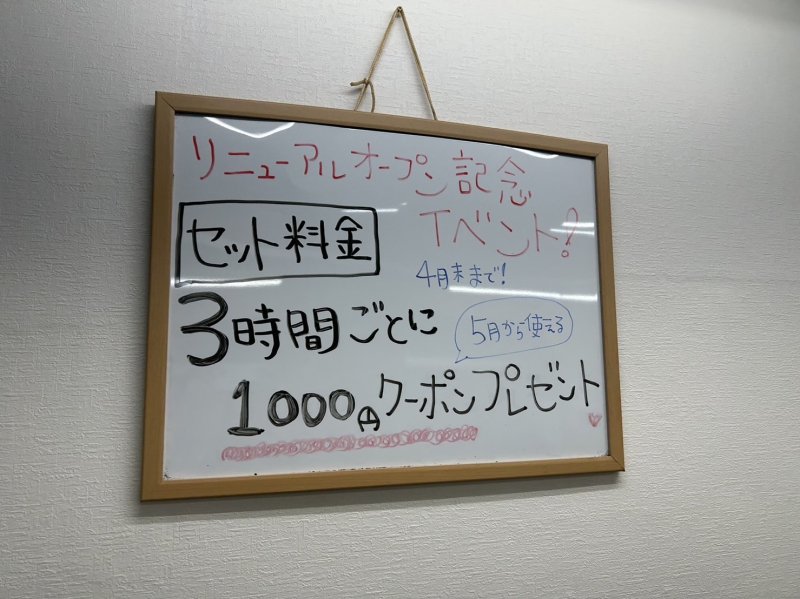 リニューアルオープン記念
イベント!
セット料金
4月末まで!
3時間ごとに
5月から使える
1000円クーポンプレゼント